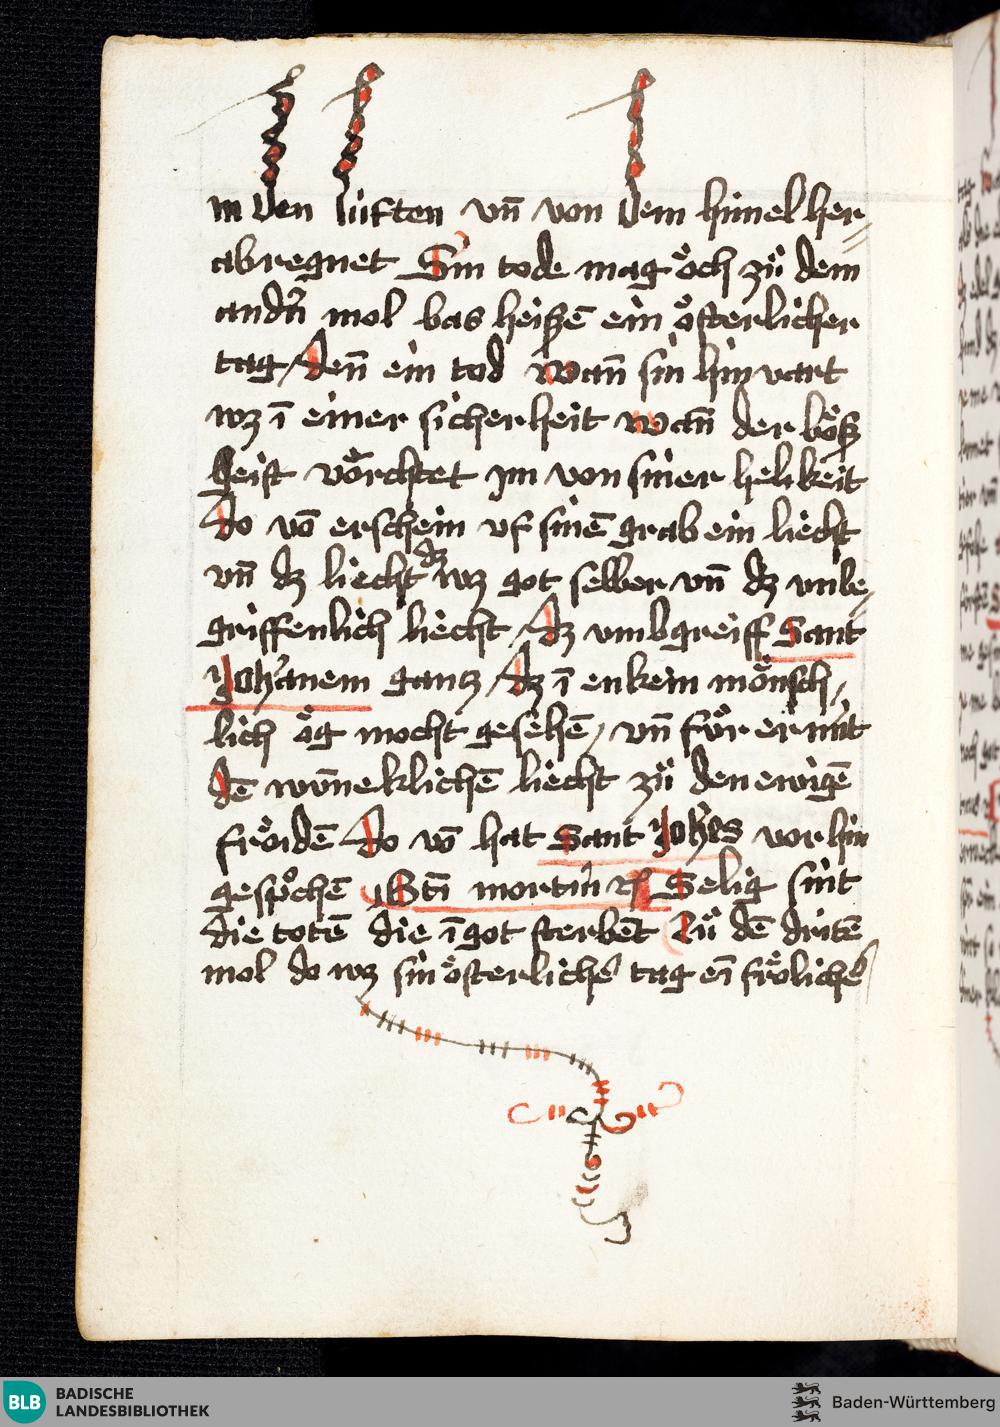 in den lüften vn̄ von dem himel her-
abregnet Sin tode mag öch zů dem
andn̄ mol bas heiſzē ein öſterlicher
tag / denn̄ ein tod Wan̄ ſin hin vart
wz ī einer ſicherheit Wan̄ der böſz
geiſt vörchtet im von ſiner helikeit
Do vō erſchein vf ſinē grab ein liecht
vn̄ dz liecht dz wz got ſelber vn̄ dz vnbe-
griffenlich liecht / Dz vmbgreiff Sant
Johanem gantz / dz ī enkein mönſch /
lich ög mocht geſehē / vn̄ fůr er mit
dē wūneklichē liecht zů den ewigē
fröidē Do vō hat Sant Johes vor hin
geſpͦchē Btī mortui rͨ Selig ſint
die totē die ī got ſterbēt Zů dē dritē
mol do wz ſin öſterlichē tag ein̄ frölichē
BLB
BADISCHE
LANDESBIBLIOTHEK
Baden-Württemberg